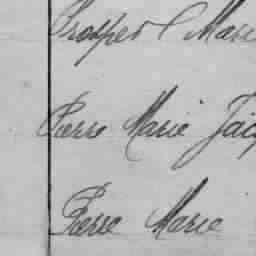 Prosper Marie
Pierre Marie Jacq
Pierre Marie